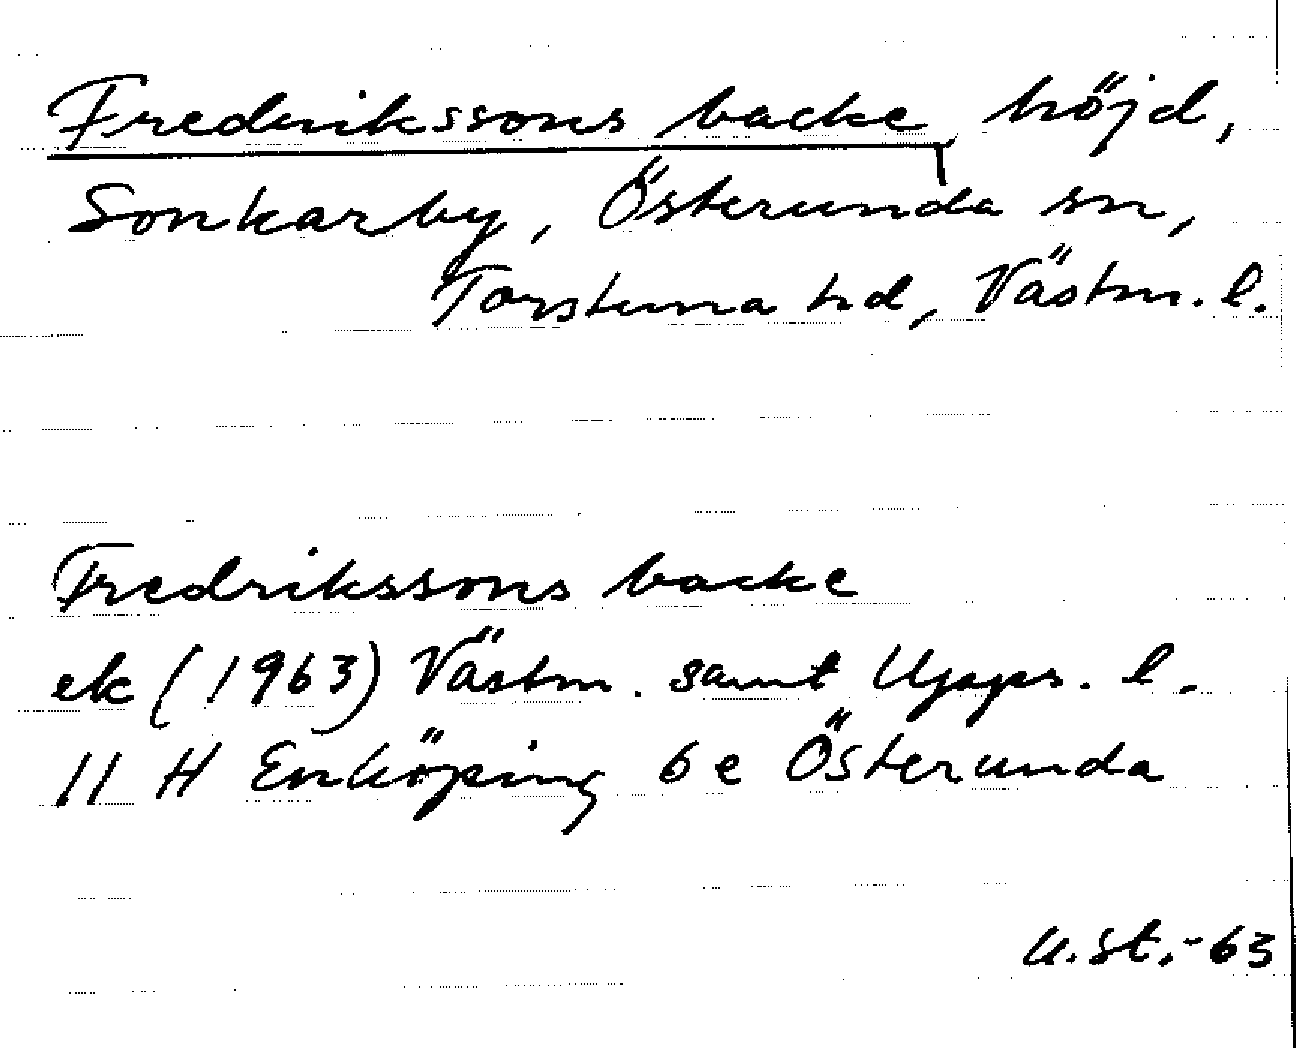 Fredrikssons backe, höjd,
Sonkarby, Österunda sn,
Torstuna hd, Västm. l.
Fredrikssons backe
ek (1963) Västm. samt Upps. l.
11 H Enköping 6 e Österunda
U.St.-63